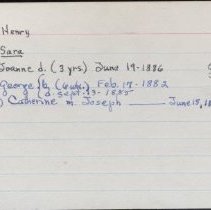 Henry
Sara
Joanne d. (3 yrs.) June 19-1886
George b. (6 wks.) Feb. 17-1882
d. Sept-3-1885
) Catherine m. Joseph —— June 15, 18